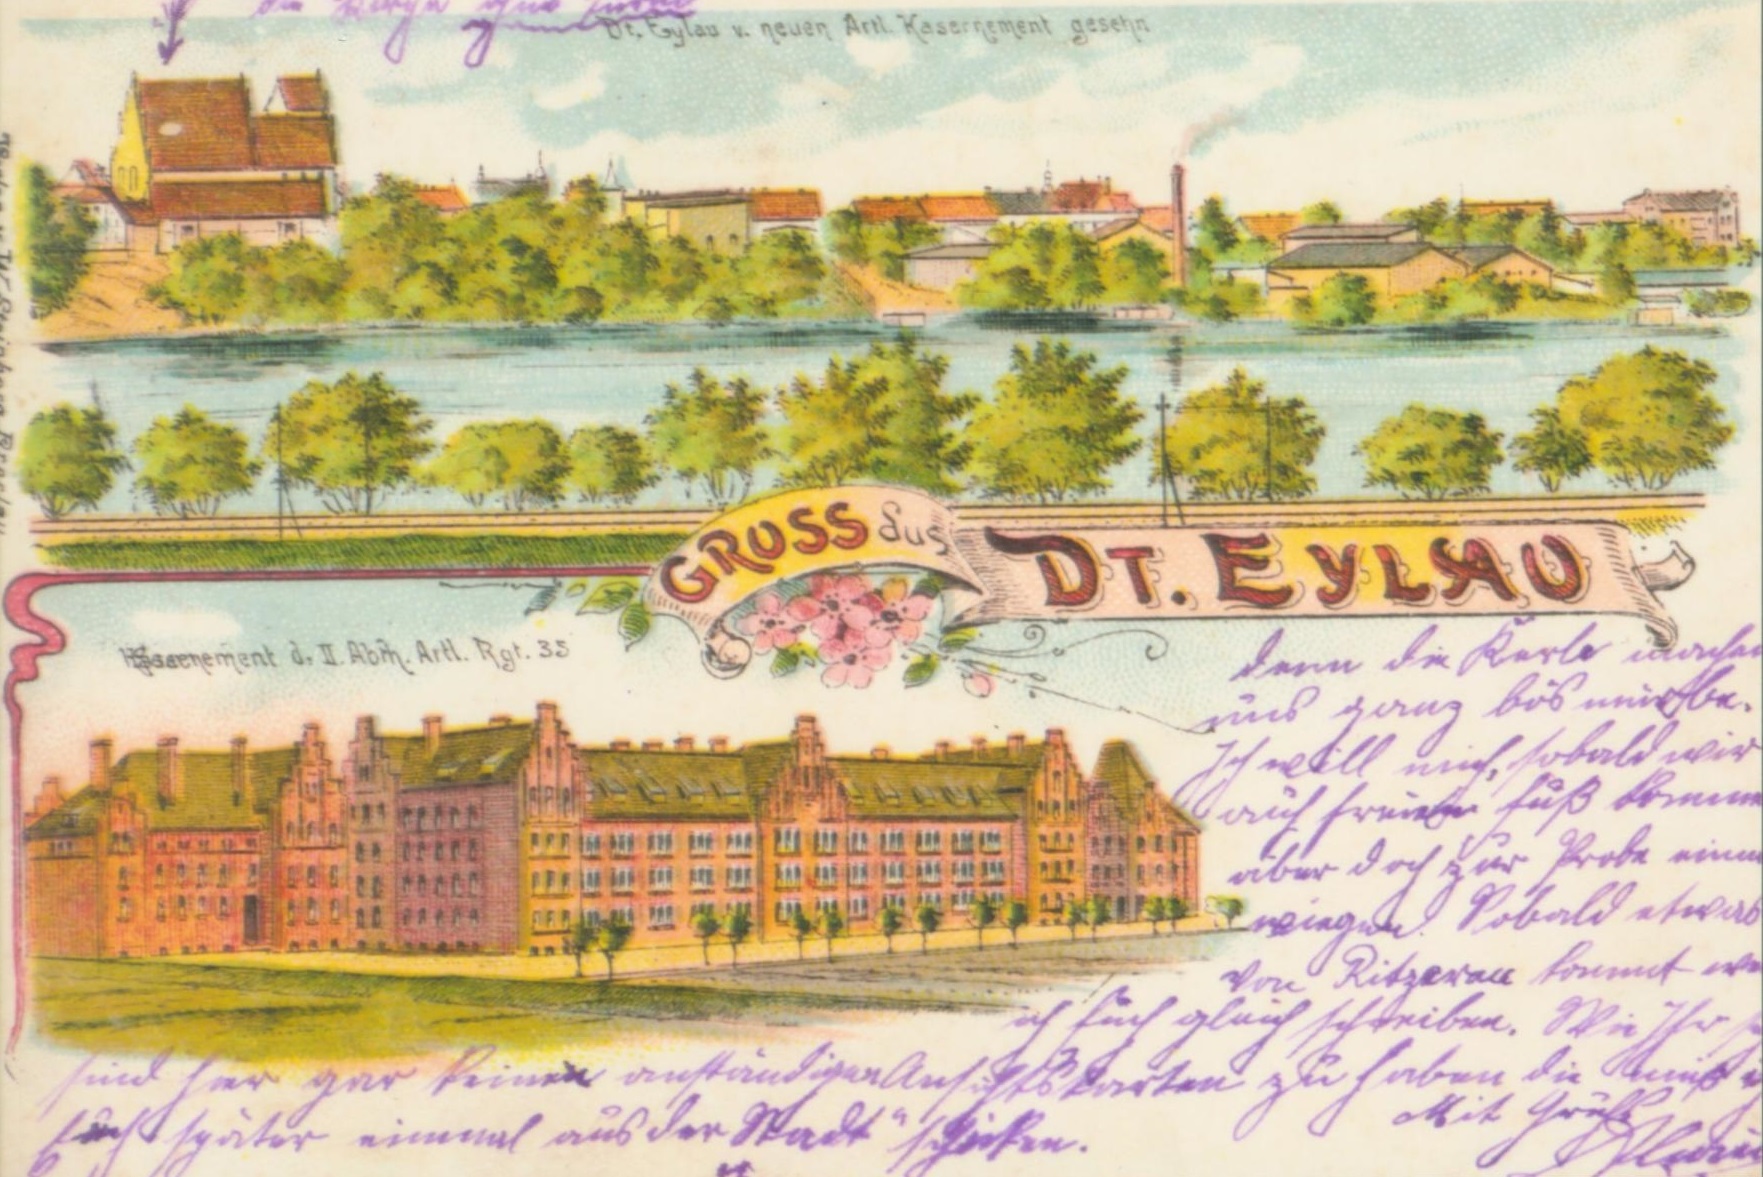 die Kirche
Dt. Eylau v. neuen Artl. Kasernement gesehn
GRUSS aus DT. EYLAU
Kasernement d. II. Abth. Artl. Rgt. 35
denn die Kerle machen
uns ganz bös mürbe.
Ich will mich, sobald wir
auf freien Fuß kommen
aber doch zur Probe einmal
wiegen. Sobald etwas
von Ritzerau kommt
ich Euch gleich schreiben. Wie Ihr
sind hier gar keine anständigen Ansichtskarten zu haben die muß
Euch später einmal aus der Stadt schicken.
Mit Gruß